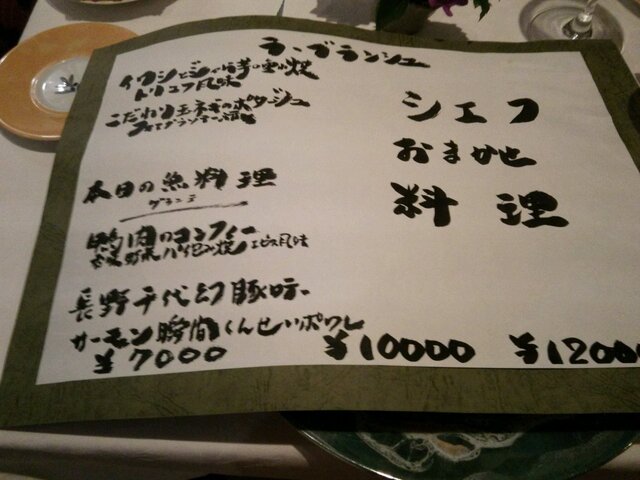 ラ・ブランシュ
イワシとじゃが芋の重ね焼
トリュフ風味
こだわり玉ネギのポタージュ
本日の魚料理
鴨肉のコンフィー
パイ包み焼 エピス風味
長野千代幻豚
サーモン瞬間くんせいポワレ
¥7000
シェフ
おまかせ
料理
¥10000
¥12000